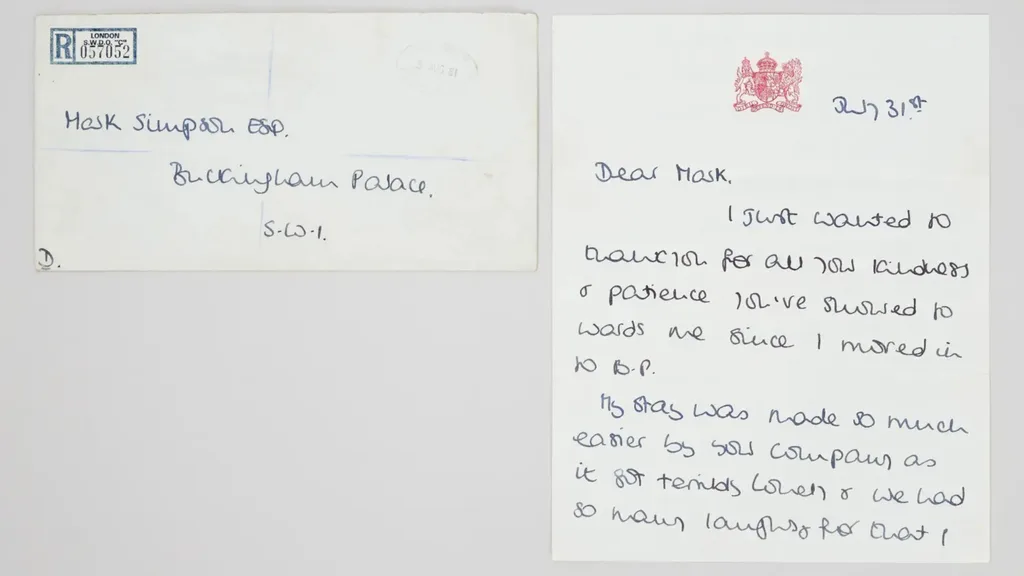 R
LONDON
S.W.D.O. "C"
057052
Mark Simpson ESQ.
Buckingham Palace.
S.W.1.
D.
July 31st
Dear Mark.
I just wanted to
thank you for all your kindness
& patience you've showed to
wards me since I moved in
to B.P.
My stay was made so much
easier by your company as
it got terribly lonely & we had
so many laughs, for that I